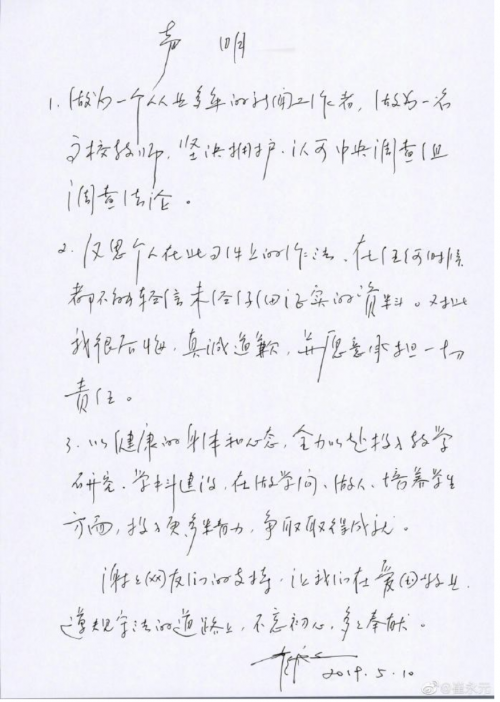 声 明
1. 做为一个从业多年的新闻工作者，做为一名
高校教师，坚决拥护、认可中央调查组
调查结论。
2. 反思个人在此事件上的作法、在任何时候
都不能轻信未经仔细证实的资料。对此
我很后悔，真诚道歉，并愿意承担一切
责任。
3. 以健康的身体和心态，全力以赴投入教学
研究、学科建设，在做学问、做人、培养学生
方面，投入更多精力，争取取得成就。
谢谢网友们的支持，让我们在爱国敬业
遵规守法的道路上，不忘初心，多多奉献。
2019.5.10
@崔永元